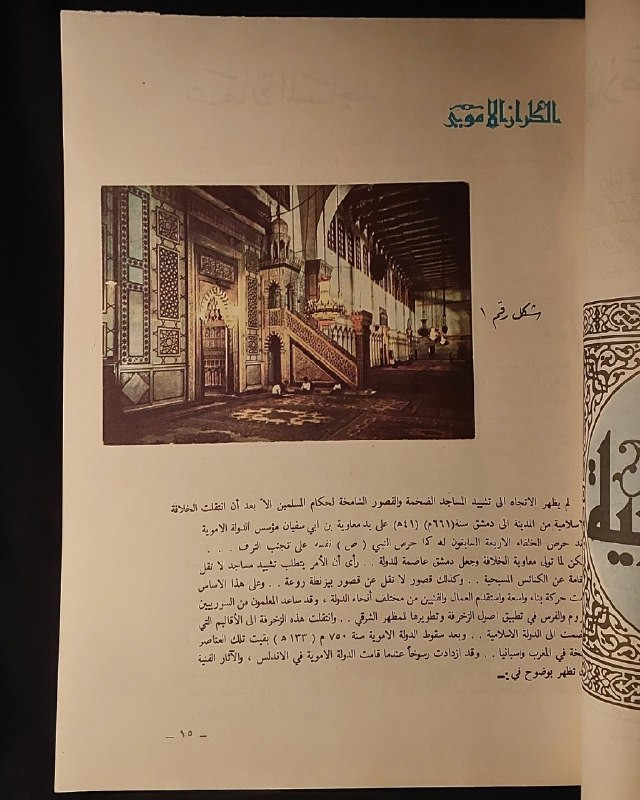 الطراز الأموي
شكل رقم ١
لم يظهر الاتجاه الى تشييد المساجد الضخمة والقصور الشامخة لحكام المسلمين الا بعد أن انتقلت الخلافة
لاسلامية من المدينة الى دمشق سنة (٦٦١م) (٤١هـ) على يد معاوية بن ابي سفيان مؤسس الدولة الاموية
حرص الخلفاء الاربعة السابقون له كما حرص النبي ( ص ) نفسه على تجنب الترف . . .
كن لما تولى معاوية الخلافة وجعل دمشق عاصمة للدولة . . رأى أن الأمر يتطلب تشييد مساجد لا تقل
عن الكنائس المسيحية . . وكذلك قصور لا تقل عن قصور بيزنطة روعة . . وعلى هذا الاساس
حركة بناء واسعة واستقدم العمال والفنيين من مختلف أنحاء الدولة ، وقد ساعد المعلمون من السوريين
روم والفرس في تطبيق اصول الزخرفة وتطويرها للمظهر الشرقي . . وانتقلت هذه الزخرفة الى الأقاليم التي
ضمت الى الدولة الاسلامية . . وبعد سقوط الدولة الاموية سنة ٧٥٠ م ( ١٣٣ هـ ) بقيت تلك العناصر
في المغرب وإسبانيا . . وقد ازدادت رسوخاً عندما قامت الدولة الاموية في الاندلس ، والآثار الفنية
تظهر بوضوح في :ـ
ـ ١٥ ـ